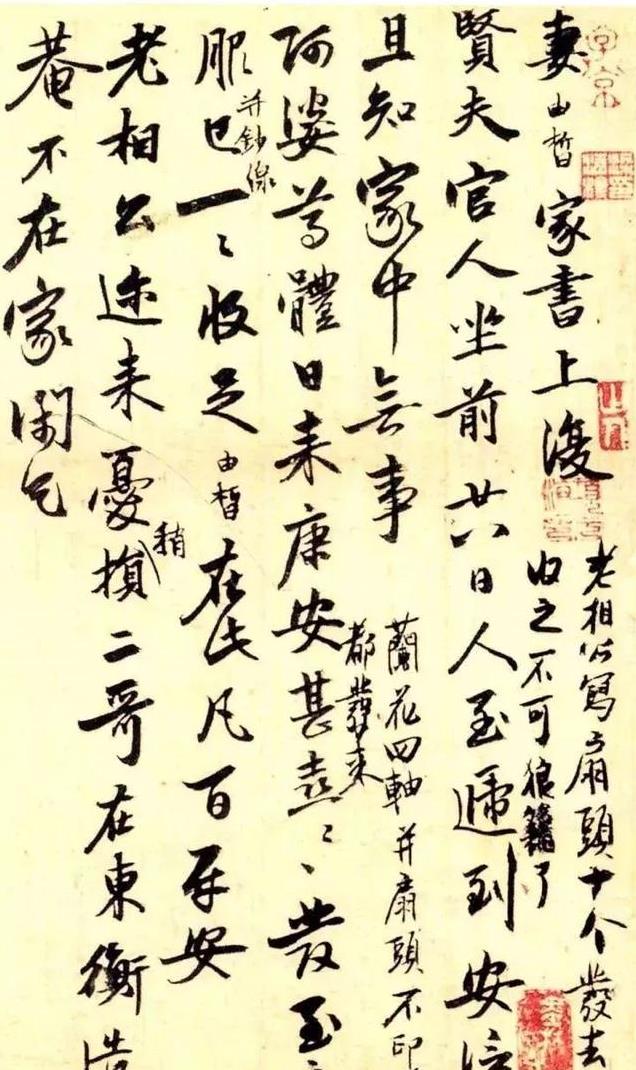 妻由皙家書上復
老相公寫扇頭十个發去
收之不可狼籍了
賢夫官人坐前廿八日人至遞到安信
且知家中無事
蘭花四軸并扇頭不印
都發来
阿婆尊體日来康安甚喜〻發至
服已一〻收足由皙在此凡百平安
并鈔線
老相公迩来憂損二哥在東衡造
稍
菴不在家